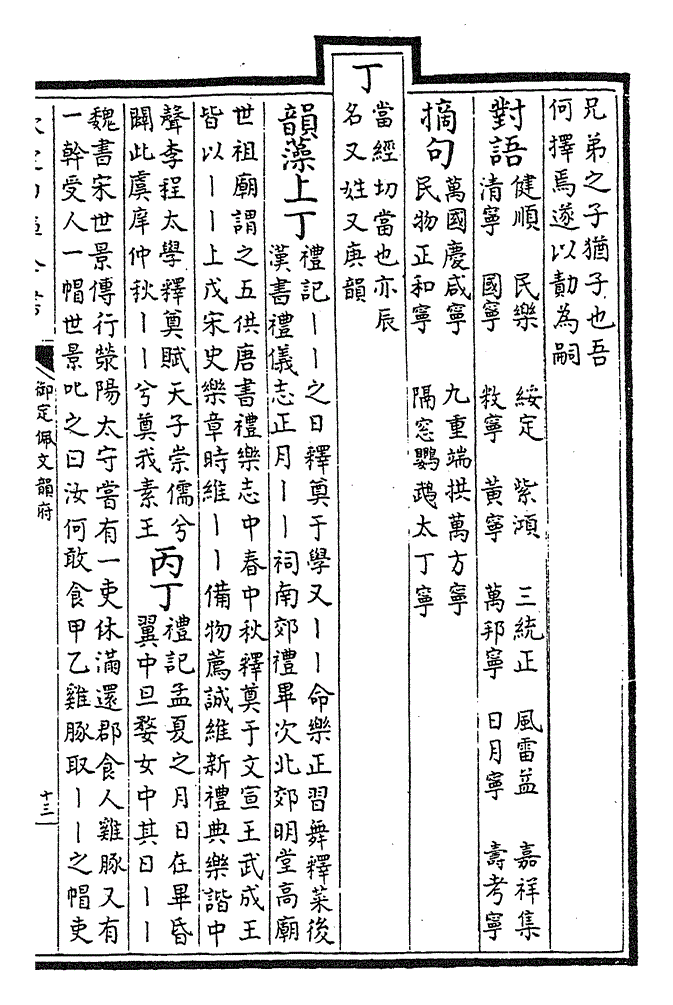 兄弟之子猶子也吾
何擇焉遂以勣為嗣
對語
健順 民樂 綏定 紫澒 三統正 風雷益 嘉祥集
清寧 國寧 敉寧 黃寧 萬邦寧 日月寧 壽考寧
摘句
萬國慶咸寧 九重端拱萬方寧
民物正和寧 隔窓鸚鵡太丁寧
丁
當經切當也亦辰
名又姓又庚韻
韻藻上丁
禮記丨丨之日釋奠于學又丨丨命樂正習舞釋菜後
漢書禮儀志正月丨丨祠南郊禮畢次北郊明堂高廟
世祖廟謂之五供唐書禮樂志中春中秋釋奠于文宣王武成王
皆以丨丨上戊宋史樂章時維丨丨備物薦誠維新禮典樂諧中
聲李程太學釋奠賦天子崇儒兮
闢此虞庠仲秋丨丨兮奠我素王
丙丁
禮記孟夏之月日在畢昏
翼中旦婺女中其日丨丨
魏書宋世景傳行滎陽太守嘗有一吏休滿還郡食人雞豚又有
一幹受人一帽世景叱之曰汝何敢食甲乙雞豚取丨丨之帽吏
御定佩文韻府
十三